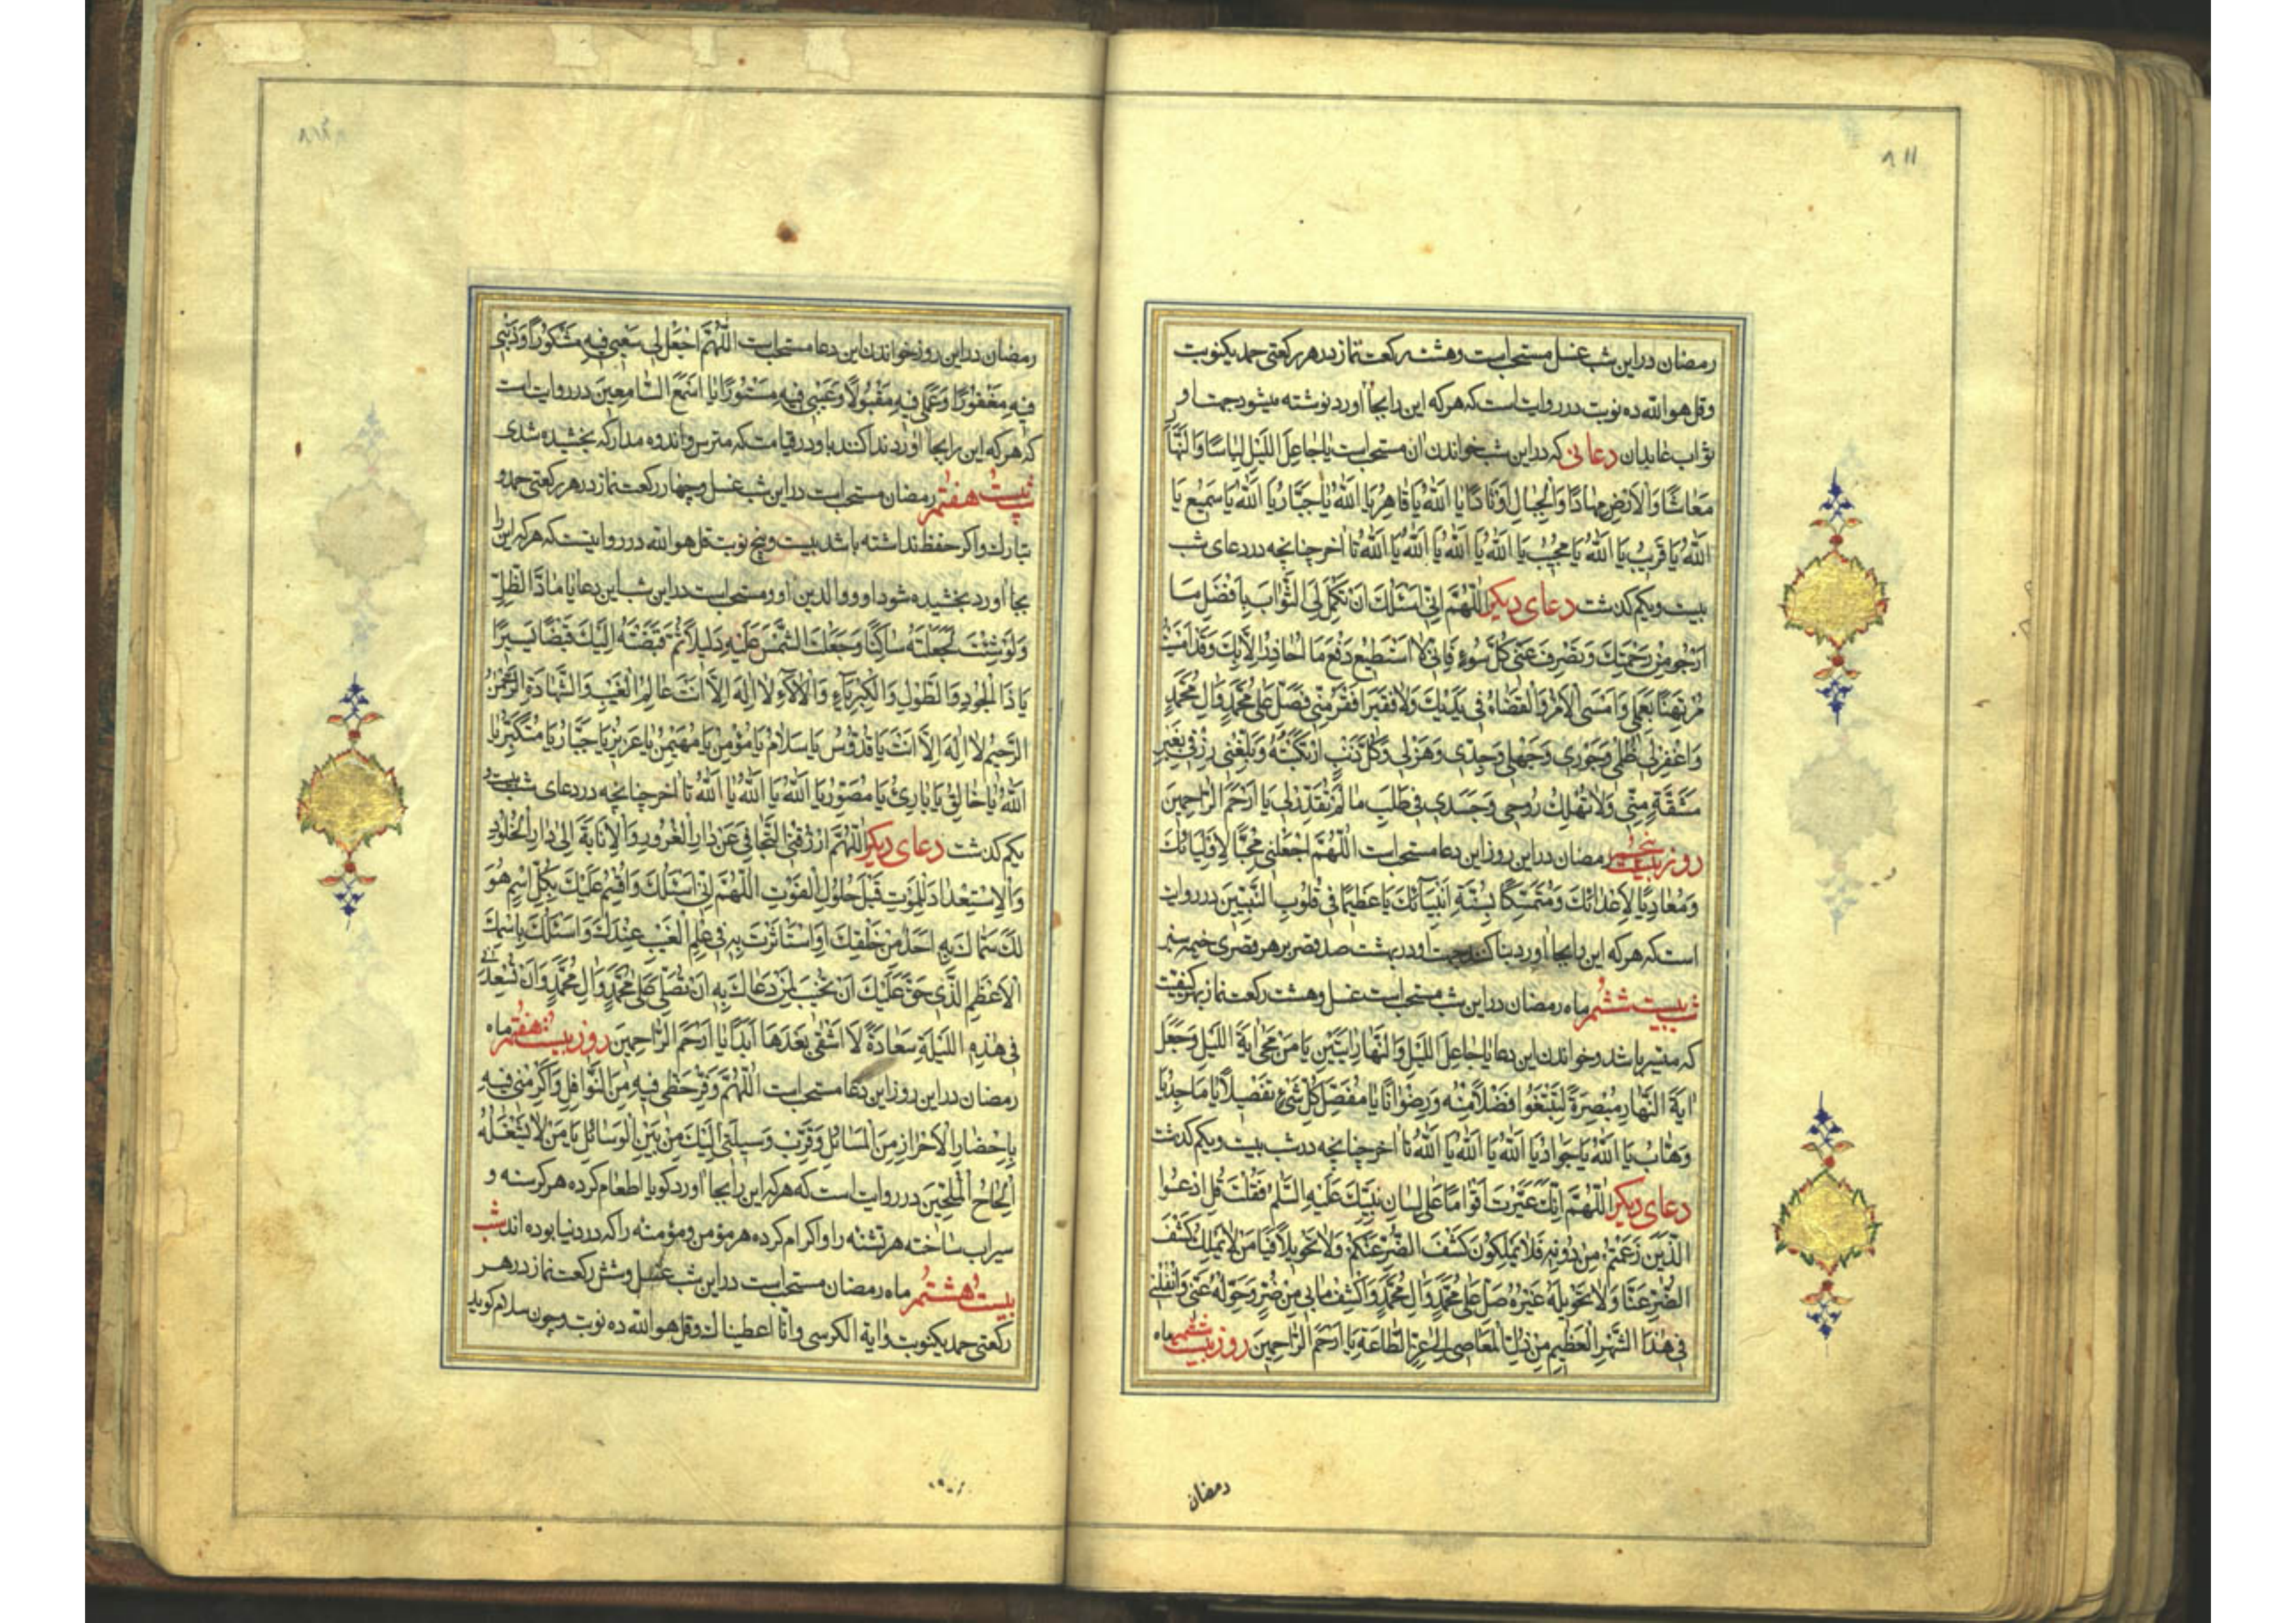 ۸۱۱
رمضان در این شب غسل مستحب است و هشت رکعت نماز در هر رکعتی حمد یکنوبت
و قل هو الله ده نوبت در روایت است که هر که این را بجا آورد نوشته میشود جهت او
ثواب عابدان دعائی که در این شب خواندن آن مستحب است یا جاعِلَ اللَّیْلِ لِباسًا وَالنَّهارِ
مَعاشًا وَالْاَرْضِ مِهادًا وَالْجِبالِ اَوْتادًا یا اَللهُ یا قاهِرُ یا اَللهُ یا جَبّارُ یا اَللهُ یا سَمیعُ یا
اَللهُ یا قَریبُ یا اَللهُ یا مُجیبُ یا اَللهُ یا اَللهُ یا اَللهُ یا اَللهُ تا آخر چنانچه در دعای شب
بیست ویکم گذشت دعای دیگر اَللّهُمَّ اِنّی اَسْئَلُكَ اَنْ تُکَمِّلَ لِیَ الثَّوابَ بِاَفْضَلِ مَا
اَرْجُو مِنْ رَحْمَتِكَ وَتَصْرِفَ عَنّی كُلَّ سُوءٍ فَاِنّی لا اَسْتَطیعُ دَفْعَ مَا اُحاذِرُ اِلاّ بِكَ وَقَدْ اَمْسَیْتُ
مُرْتَهَنًا بِعَمَلی وَاَمْسَی الْاَمْرُ وَالْقَضاءُ فی یَدَیْكَ وَلا فَقیرَ اَفْقَرُ مِنّی فَصَلِّ عَلی مُحَمَّدٍ وَالِ مُحَمَّدٍ
وَاغْفِرْ لی ظُلْمی وَجَوْری وَجَهْلی وَجِدّی وَهَزْلی وَكُلَّ ذَنْبٍ ارْتَكَبْتُهُ وَبَلِّغْنی رِزْقی بِغَیْرِ
مَشَقَّةٍ مِنّی وَلا تُهْلِكْ رُوحی وَجَسَدی فی طَلَبِ ما لَمْ تُقَدِّرْ لی یا اَرْحَمَ الرّاحِمینَ
روز بیست پنجم رمضان در این روز این دعا مستحب است اَللّهُمَّ اجْعَلْنی مُحِبًّا لِاَوْلِیائِكَ
وَمُعادِیًا لِاَعْدائِكَ وَمُتَمَسِّكًا بِسُنَّةِ اَنْبِیائِكَ یا عَظیمًا فی قُلُوبِ النَّبِیّینَ در روایت
است که هر که این را بجا آورد بنا کنند جهت او در بهشت صد قصر بر هر قصری خیمه سبز
شب بیست ششم ماه رمضان در این شب مستحب است غسل و هشت رکعت نماز بهر کیفیت
که میسر باشد و خواندن این دعا یا جاعِلَ اللَّیْلِ وَالنَّهارِ ایَتَیْنِ یا مَنْ مَحی ایَةَ اللَّیْلِ وَجَعَلَ
ایَةَ النَّهارِ مُبْصِرَةً لِتَبْتَغُوا فَضْلًا مِنْهُ وَرِضْوانًا یا مُفَصِّلَ كُلِّ شَیْءٍ تَفْصیلًا یا ماجِدُ یا
وَهّابُ یا اَللهُ یا جَوادُ یا اَللهُ یا اَللهُ یا اَللهُ تا آخر چنانچه در شب بیست ویکم گذشت
دعای دیگر اَللّهُمَّ اِنَّكَ عَیَّرْتَ اَقْوامًا عَلی لِسانِ نَبِیِّكَ عَلَیْهِ السَّلمُ فَقُلْتَ قُلِ ادْعُوا
الَّذینَ زَعَمْتُمْ مِنْ دُونِهِ فَلا یَمْلِكُونَ كَشْفَ الضُّرِّ عَنْكُمْ وَلا تَحْویلًا فَیا مَنْ لا یَمْلِكُ كَشْفَ
الضُّرِّ عَنّا وَلا تَحْویلَهُ غَیْرُهُ صَلِّ عَلی مُحَمَّدٍ وَالِ مُحَمَّدٍ وَاكْشِفْ ما بی مِنْ ضُرٍّ وَحَوِّلْهُ عَنّی وَانْقُلْنی
فی هذَا الشَّهْرِ الْعَظیمِ مِنْ ذُلِّ الْمَعاصی اِلی عِزِّ الطّاعَةِ یا اَرْحَمَ الرّاحِمینَ روز بیست ششم ماه
رمضان
۸۱۲
رمضان در این روز خواندن این دعا مستحب است اَللّهُمَّ اجْعَلْ لی سَعْیی فیهِ مَشْكُورًا وَذَنْبی
فیهِ مَغْفُورًا وَعَمَلی فیهِ مَقْبُولًا وَعَیْبی فیهِ مَسْتُورًا یا اَسْمَعَ السّامِعینَ در روایت است
که هر که این را بجا آورد ندا کنند باو در قیامت که مترس و اندوه مدار که بخشیده شدی
شب بیست هفتم رمضان مستحب است در این شب غسل و چهار رکعت نماز در هر رکعتی حمد و
تبارك و اکر حفظ نداشته باشد بیست و پنج نوبت قل هو الله در روایتست که هر که این را
بجا آورد بخشیده شود او و والدین او و مستحب است در این شب این دعا یا مادَّ الظِّلِّ
وَلَوْ شِئْتَ لَجَعَلْتَهُ ساكِنًا وَجَعَلْتَ الشَّمْسَ عَلَیْهِ دَلیلًا ثُمَّ قَبَضْتَهُ اِلَیْكَ قَبْضًا یَسیرًا
یا ذَا الْجُودِ وَالطَّوْلِ وَالْكِبْرِیاءِ وَالْالاءِ لا اِلهَ اِلاّ اَنْتَ عالِمُ الْغَیْبِ وَالشَّهادَةِ الرَّحْمنُ
الرَّحیمُ لا اِلهَ اِلاّ اَنْتَ یا قُدُّوسُ یا سَلامُ یا مُؤْمِنُ یا مُهَیْمِنُ یا عَزیزُ یا جَبّارُ یا مُتَكَبِّرُ یا
اَللهُ یا خالِقُ یا بارِئُ یا مُصَوِّرُ یا اَللهُ یا اَللهُ یا اَللهُ تا آخر چنانچه در دعای شب بیست و
یکم گذشت دعای دیگر اَللّهُمَّ ارْزُقْنِی التَّجافِیَ عَنْ دارِ الْغُرُورِ وَالْاِنابَةَ اِلی دارِ الْخُلُودِ
وَالْاِسْتِعْدادَ لِلْمَوْتِ قَبْلَ حُلُولِ الْفَوْتِ اَللّهُمَّ اِنّی اَسْئَلُكَ وَاُقْسِمُ عَلَیْكَ بِكُلِّ اسْمٍ هُوَ
لَكَ سَمّاكَ بِهِ اَحَدٌ مِنْ خَلْقِكَ اَوِ اسْتَأْثَرْتَ بِهِ فی عِلْمِ الْغَیْبِ عِنْدَكَ وَاَسْئَلُكَ بِاسْمِكَ
الْاَعْظَمِ الَّذی حَقٌّ عَلَیْكَ اَنْ تُجیبَ لِمَنْ دَعاكَ بِهِ اَنْ تُصَلِّیَ عَلی مُحَمَّدٍ وَالِ مُحَمَّدٍ وَاَنْ تُسْعِدَنی
فی هذِهِ اللَّیْلَةِ سَعادَةً لا اَشْقی بَعْدَها اَبَدًا یا اَرْحَمَ الرّاحِمینَ روز بیست هفتم ماه
رمضان در این روز این دعا مستحب است اَللّهُمَّ وَفِّرْ حَظّی فیهِ مِنَ النَّوافِلِ وَاَكْرِمْنی فیهِ
بِاِحْضارِ الْاَحْرازِ مِنَ الْمَسائِلِ وَقَرِّبْ وَسیلَتی اِلَیْكَ مِنْ بَیْنِ الْوَسائِلِ یا مَنْ لا یَشْغَلُهُ
اِلْحاحُ الْمُلِحّینَ در روایت است که هر که این را بجا آورد کویا اطعام کرده هر کرسنه و
سیراب ساخته هر تشنه را و اکرام کرده هر مؤمن و مؤمنه را که در دنیا بوده اند شب
بیست هشتم ماه رمضان مستحب است در این شب غسل و شش رکعت نماز در هر
رکعتی حمد یکنوبت و آیة الکرسی و انا اعطیناك و قل هو الله ده نوبت و چون سلام کوید